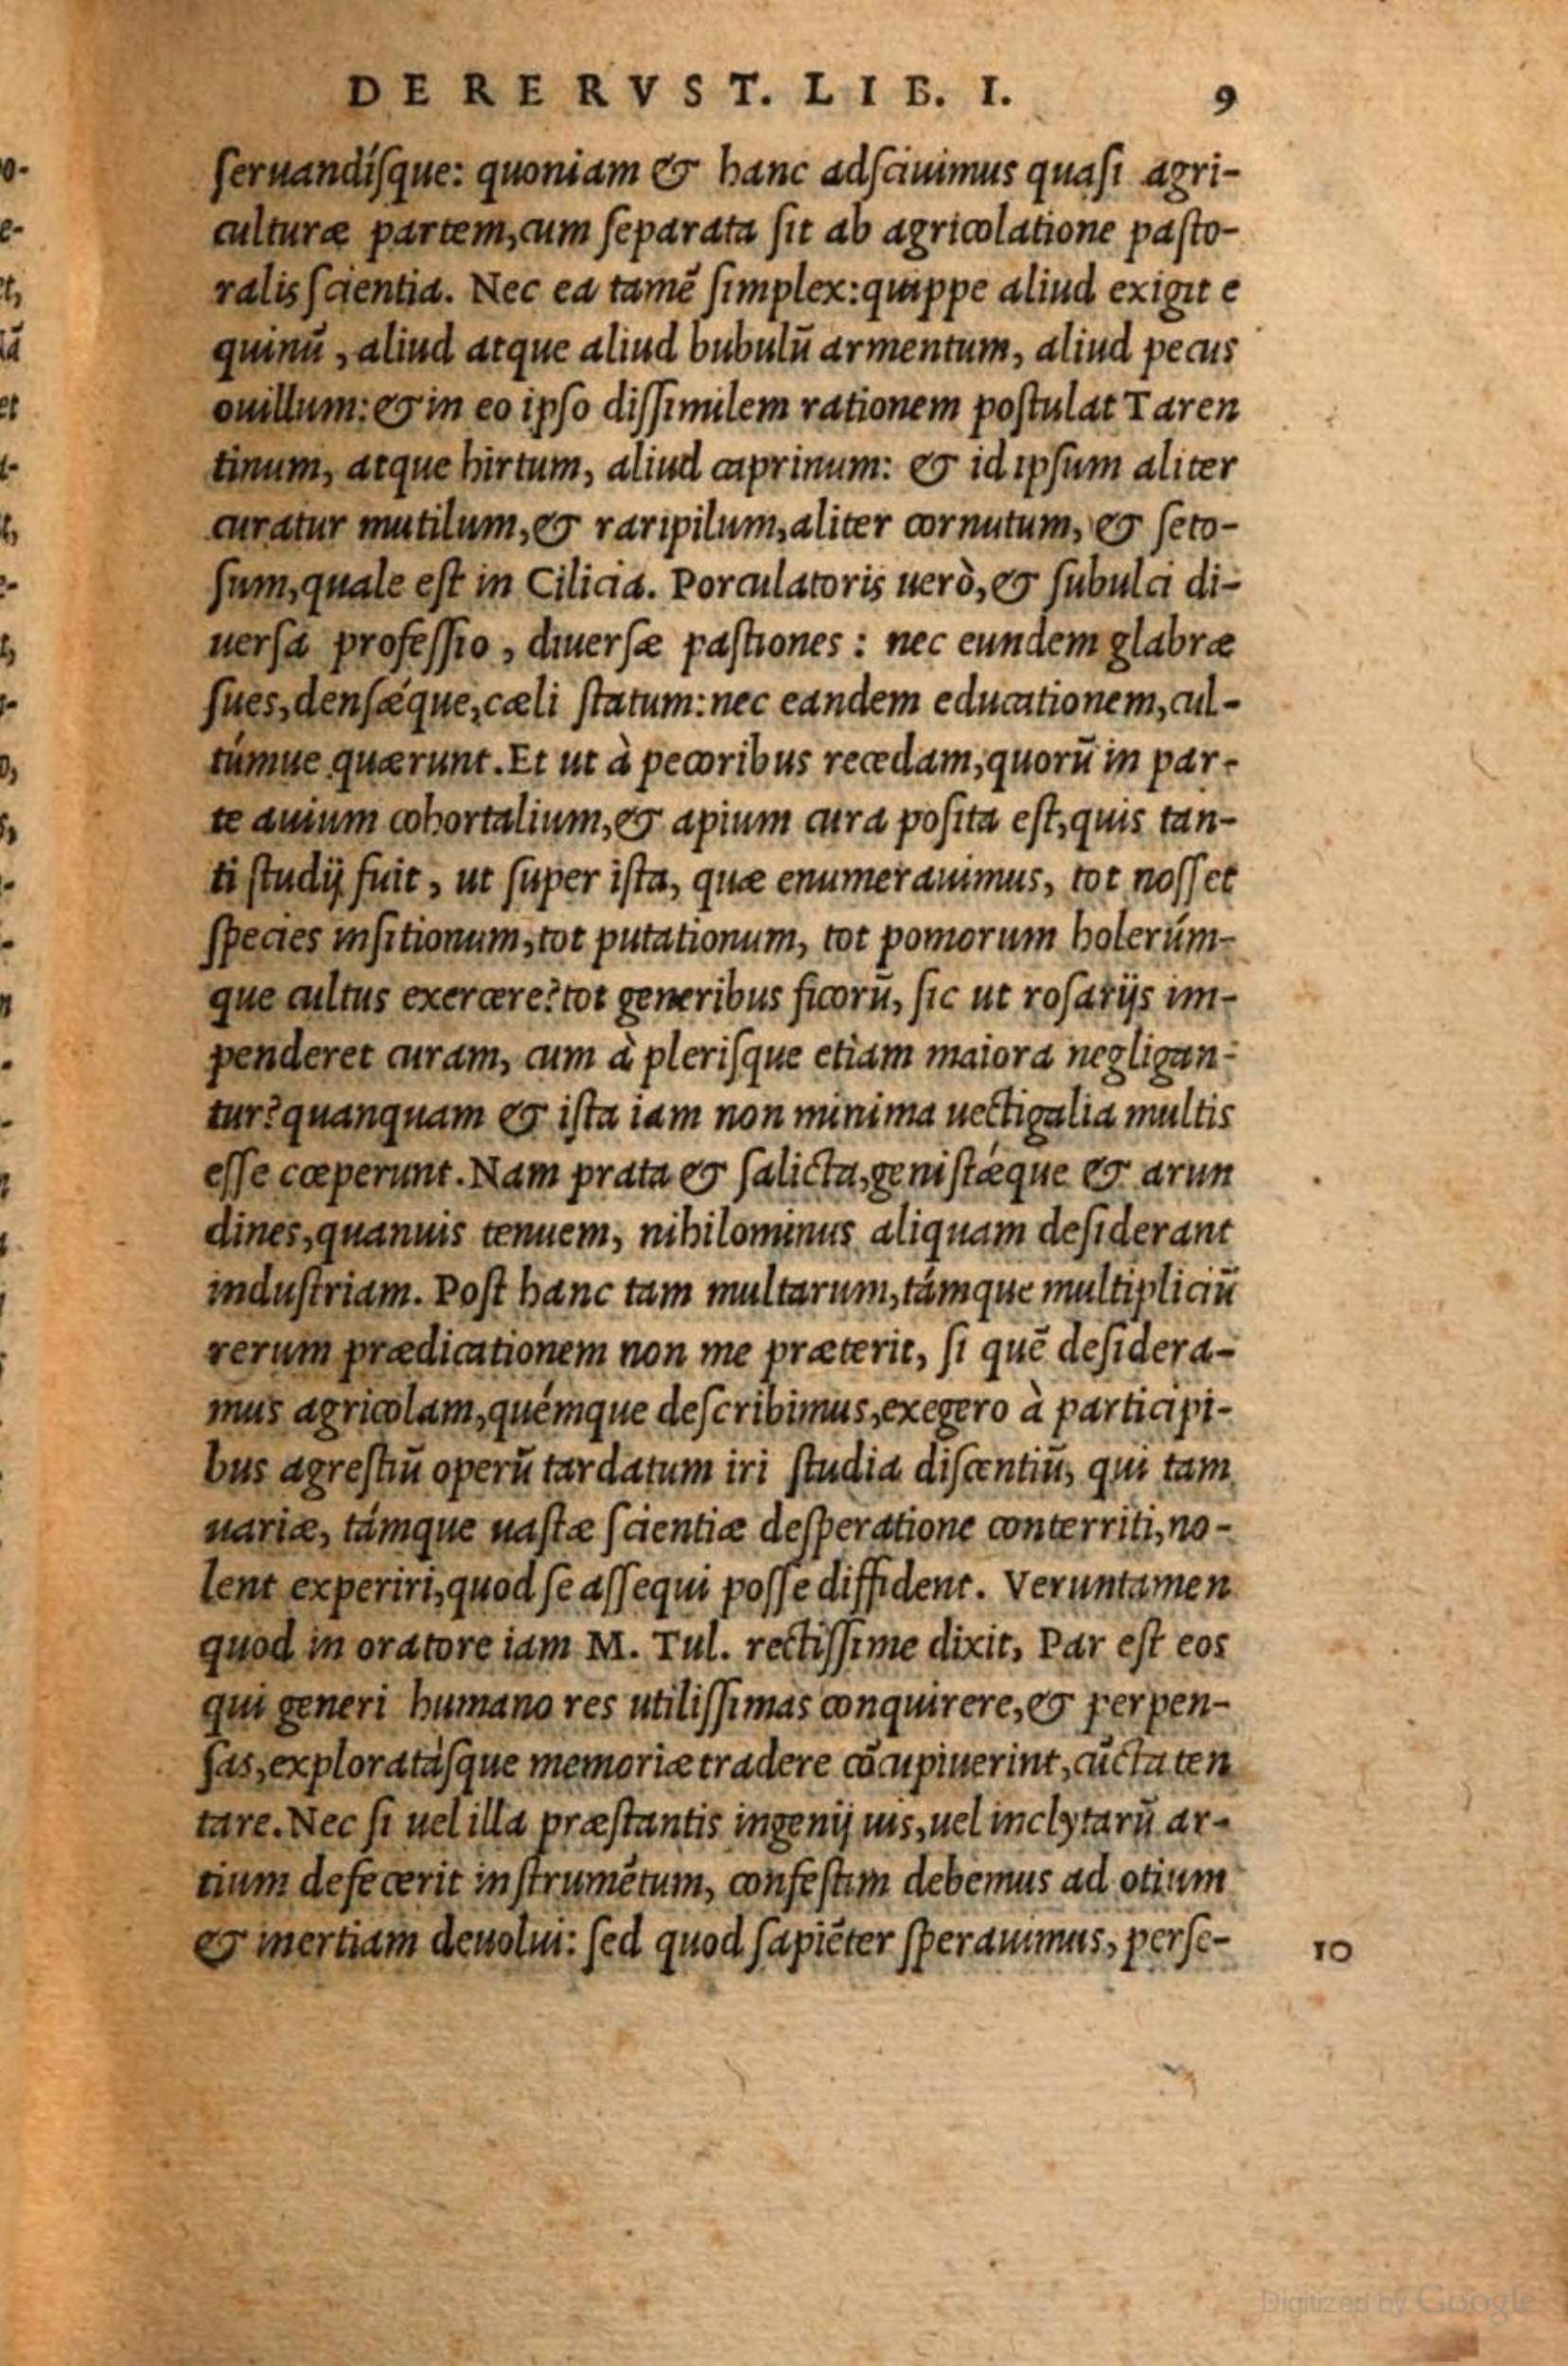 DE RE RVST. LIB. I. 9
ſeruandíſque: quoniam & hanc adſciuimus quaſi agri-
culturæ partem,cum ſeparata ſit ab agricolatione paſto-
ralis ſcientia. Nec ea tamē ſimplex:quippe aliud exigit e
quinū , aliud atque aliud bubulū armentum, aliud pecus
ouillum:& in eo ipſo diſſimilem rationem poſtulat Taren
tinum, atque hirtum, aliud caprinum: & id ipſum aliter
curatur mutilum,& raripilum,aliter cornutum, & ſeto-
ſum,quale eſt in Cilicia. Porculatoris uerò,& ſubulci di-
uerſa profeſſio , diuerſæ paſtiones : nec eundem glabræ
ſues,denſǽque,cæli ſtatum:nec eandem educationem,cul-
túmue quærunt.Et ut à pecoribus recedam,quorū in par-
te auium cohortalium,& apium cura poſita eſt,quis tan-
ti ſtudij fuit , ut ſuper iſta, quæ enumerauimus, tot noſſet
ſpecies inſitionum,tot putationum, tot pomorum holerúm-
que cultus exercere?tot generibus ficorū, ſic ut roſarijs im-
penderet curam, cum à pleriſque etiam maiora negligan-
tur?quanquam & iſta iam non minima uectigalia multis
eſſe cœperunt.Nam prata & ſalicta,geniſtǽque & arun
dines,quanuis tenuem, nihilominus aliquam deſiderant
induſtriam. Poſt hanc tam multarum,támque multipliciū
rerum prædicationem non me præterit, ſi quē deſidera-
mus agricolam,quémque deſcribimus,exegero à participi-
bus agreſtiū operū tardatum iri ſtudia diſcentiū, qui tam
uariæ, támque uaſtæ ſcientiæ deſperatione conterriti,no-
lent experiri,quod ſe aſſequi poſſe diffident. Veruntamen
quod in oratore iam M. Tul. rectiſſime dixit, Par eſt eos
qui generi humano res utiliſſimas conquirere,& perpen-
ſas,exploratáſque memoriæ tradere cōcupiuerint,cūcta ten
tare.Nec ſi uel illa præſtantis ingenij uis,uel inclytarū ar-
tium defecerit inſtrumētum, confeſtim debemus ad otium
& inertiam deuolui: ſed quod ſapiēter ſperauimus, perſe-
10
Digitized by Google